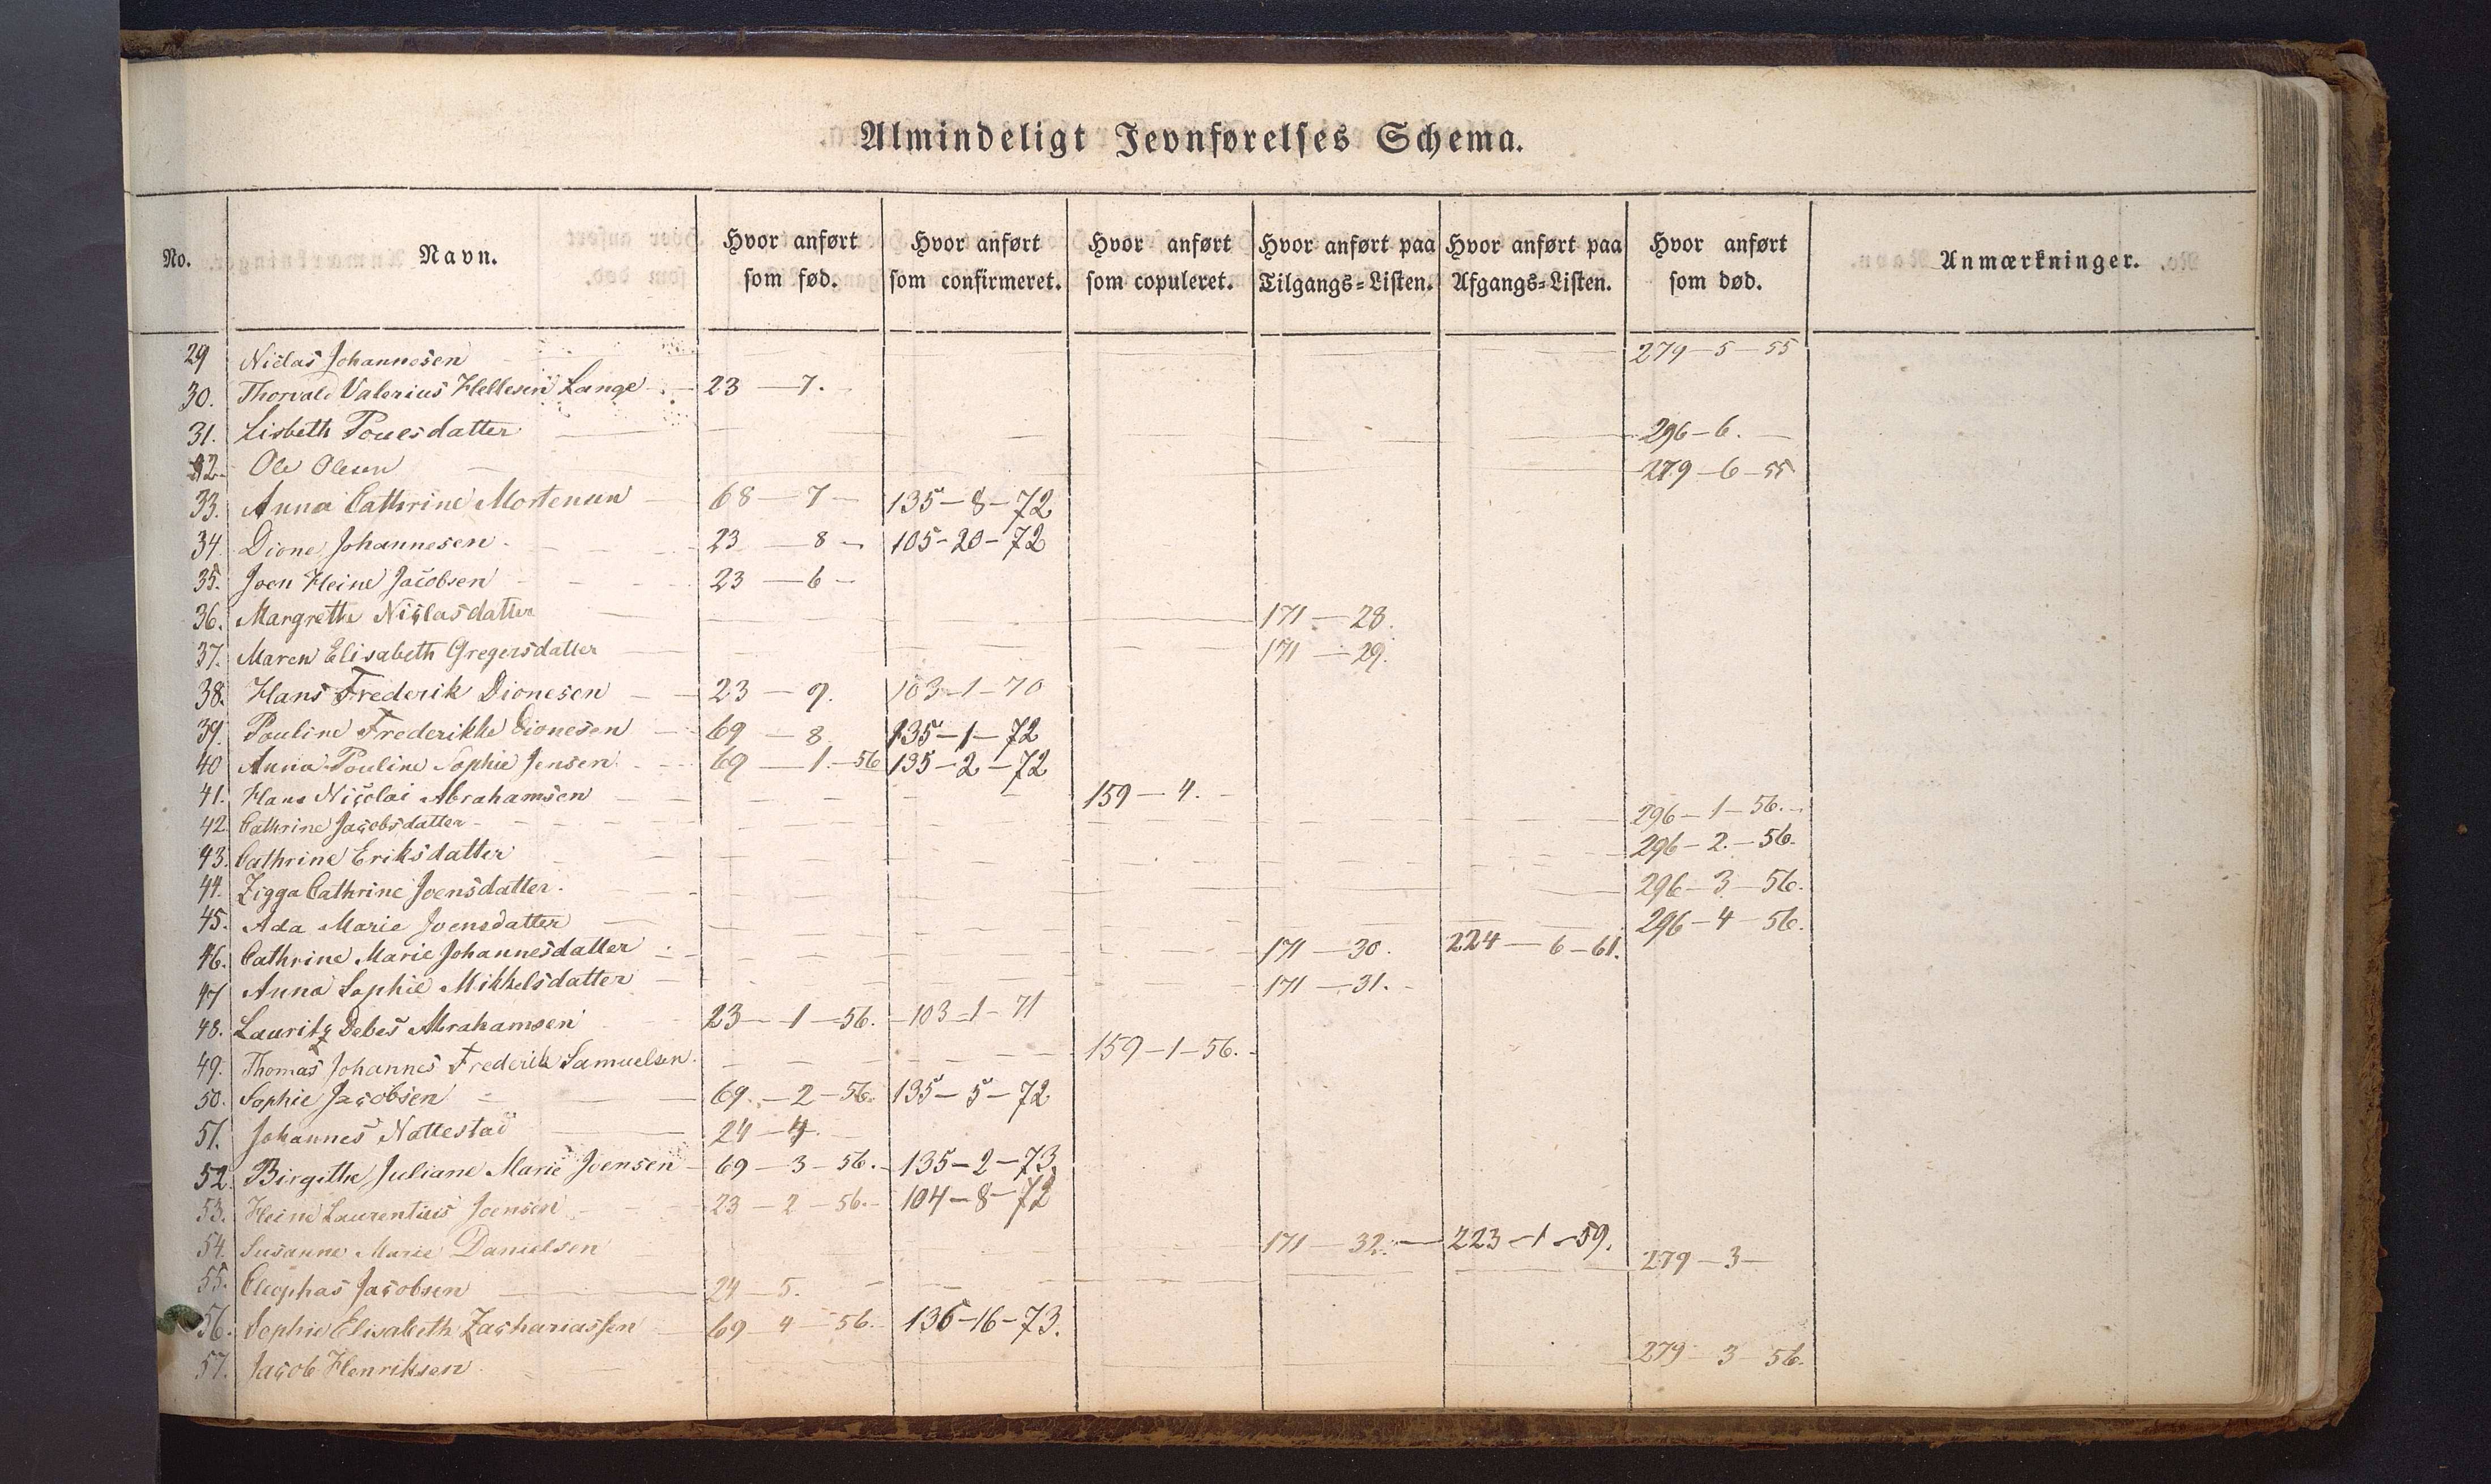 Almindeligt Jevnførelses Schema.
No. Navn. Hvor anført som fød. Hvor anført som confirmeret. Hvor anført som copuleret. Hvor anført paa Tilgangs-Listen. Hvor anført paa Afgangs-Listen. Hvor anført som død. Anmærkninger.
29 Niclas Johannesen 279-5-55
30. Thorvald Valerius Hellesen Lange 23-7.
31. Lisbeth Pouesdatter 296-6.
32. Ole Olesen 279-6-55
33. Anna Cathrine Mortensen 68-7- 135-8-72
34. Dione Johannesen 23-8- 105-20-72
35. Joen Heine Jacobsen 23-6-
36. Margrethe Niclasdatter 171-28.
37. Maren Elisabeth Gregersdatter 171-29.
38. Hans Frederik Dionesen 23-9. 103-1-70
39. Pouline Frederikke Dionesen 69-8. 135-1-72
40 Anna Pouline Sophie Jensen 69-1.-56 135-2-72
41. Hans Nicolai Abrahamsen 159-4.
42. Cathrine Jacobsdatter 296-1-56.
43. Cathrine Eriksdatter 296-2.-56.
44. Zigga Cathrine Joensdatter. 296-3-56.
45. Ada Marie Joensdatter 296-4-56.
46. Cathrine Marie Johannesdatter 171-30. 224-6-61.
47 Anna Sophie Mikkelsdatter 171-31.
48. Lauritz Debes Abrahamsen 23-1-56. 103-1-71
49. Thomas Johannes Frederik Samuelsen. 159-1-56.
50. Sophie Jacobsen 69.-2-56. 135-5-72
51. Johannes Nattestad 24-4.
52. Birgithe Juliane Marie Joensen 69-3-56. 135-2-73.
53. Heine Laurentius Joensen 23-2-56. 104-8-72
54. Susanne Marie Danielsen 171-32. 223-1-59.
55. Cleophas Jacobsen 24-5. 279-3-
56. Sophie Elisabeth Zachariassen 69-4-56. 136-16-73.
57. Jacob Henriksen 279-3-56.